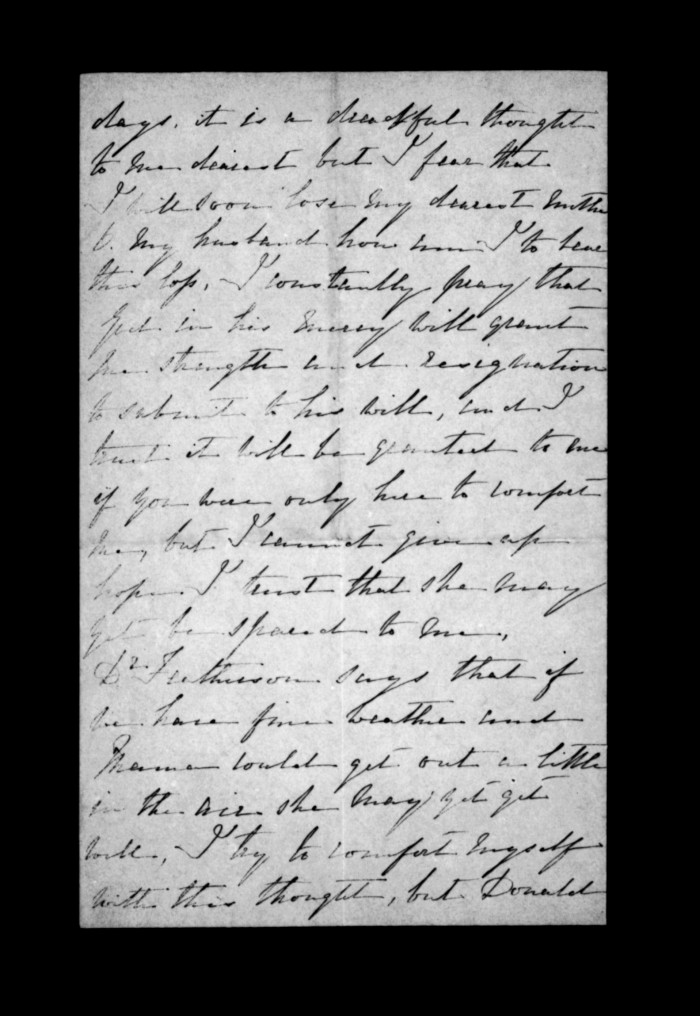 days. it is a dreadful thought
to me dearest but I fear that
I will soon lose my dearest Mother
O. my husband how am I to bear
this loss, I constantly pray that
God in his mercy will grant
me strength and resignation
to submit to his will, and I
trust it will be granted to me
if you were only here to comfort
me, but I cannot give up
hope I trust that she may
yet be spared to me,
Dr says that if
we have fine weather and
Mama could get out a little
in the air she may yet get
well, I try to comfort myself
with this thought, but Donald